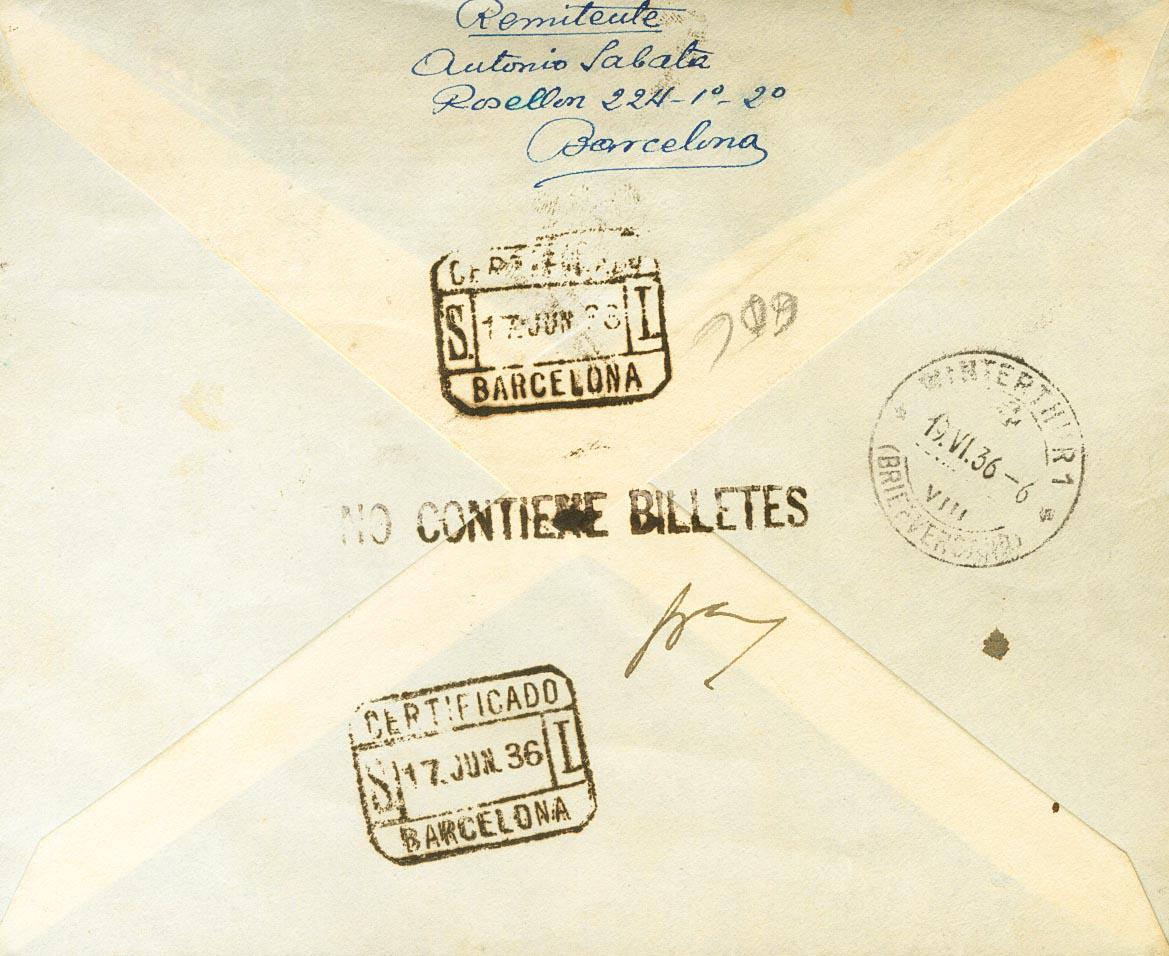 Remitente
Antonio Sabata
Rosellon 224-1º-2º
Barcelona
CERTIFICADO
S. 17.JUN.36 L
BARCELONA
WINTERTHUR 1
19.VI.36-6
VIII
(BRIEFVERSAND)
NO CONTIENE BILLETES
CERTIFICADO
S. 17.JUN.36 L
BARCELONA